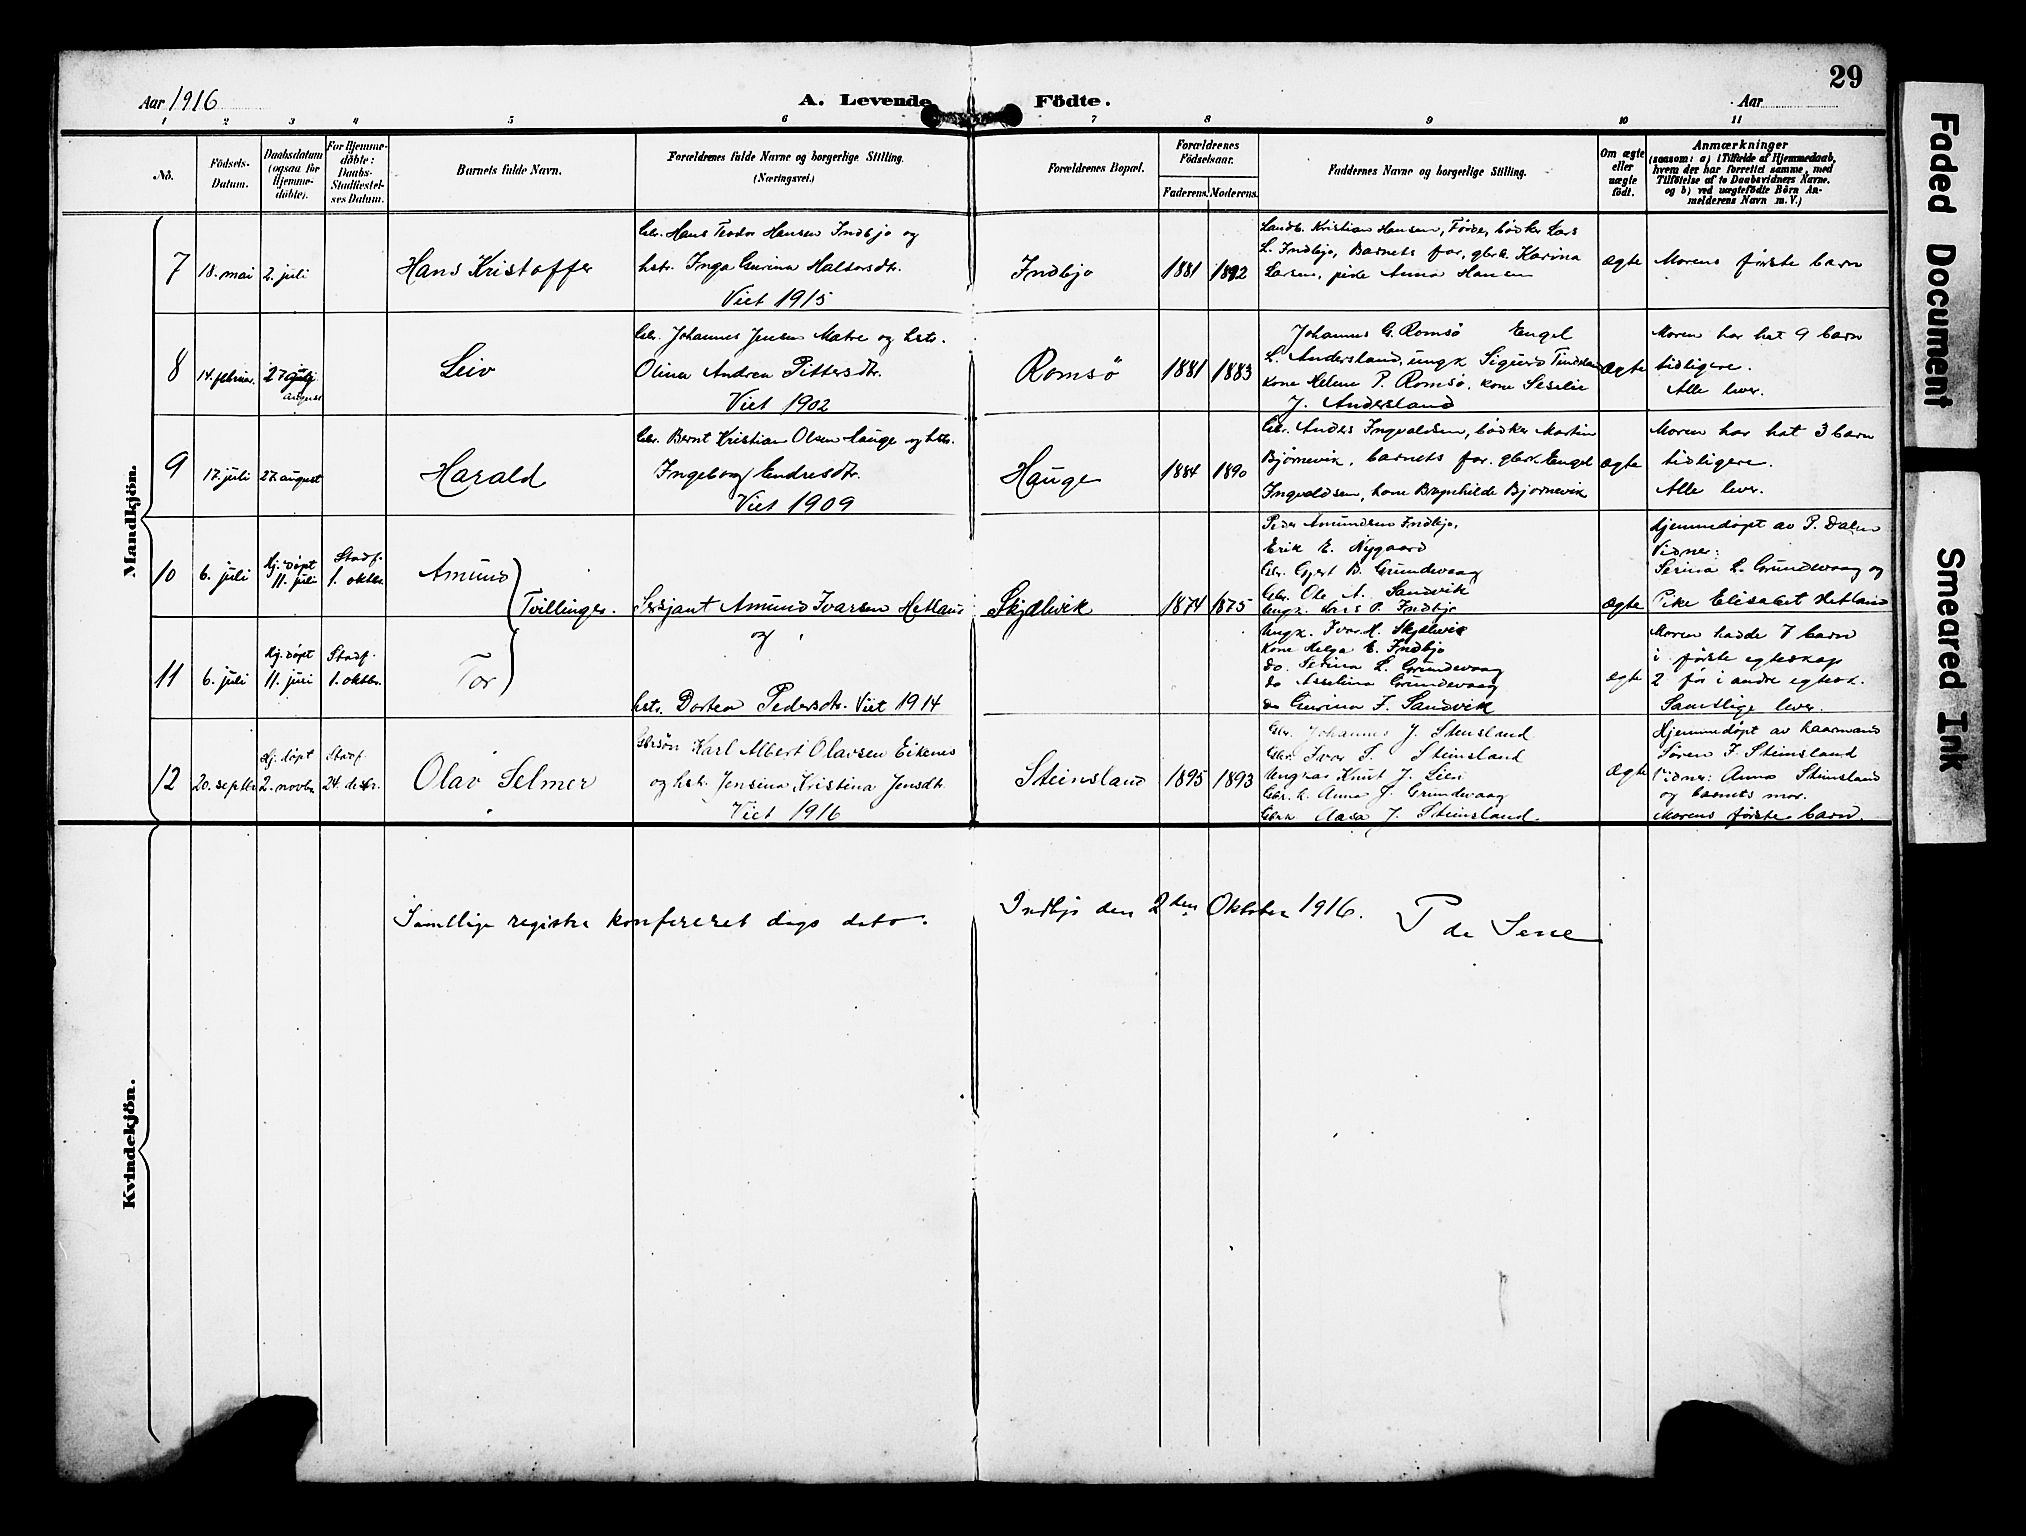 29
Aar 1916
A. Levende Födte.
Aar
1 2 3 4 5 6 7 8 9 10 11
No.
Födsels-
Datum.
Daabsdatum
(ogsaa for
Hjemme-
döbte).
For Hjemme-
döbte:
Daabs-
Stadfæstel-
ses Datum.
Barnets fulde Navn.
Forældrenes fulde Navne og borgerlige Stilling.
(Næringsvei.)
Forældrenes Bopæl.
Forældrenes
Födselsaar.
Faderens. Moderens.
Faddernes Navne og borgerlige Stilling.
Om ægte
eller
uægte
födt.
Anmærkninger
(saasom: a) i Tilfælde af Hjemmedaab,
hvem der har forrettet samme, med
Tilföielse af to Daabsvidners Navne.
og b) ved uægtefödte Börn An-
melderens Navn m. V.)
Mandkjön.
7
18. mai
2. juli
Hans Kristoffer
Gbr. Hans Teodor Hansen Indbjo og
hstr. Inga Gurina Halvorsdtr.
Viet 1915
Indbjo
1881
1892
Landh. Kristian Hansen, Førde, bødker Lars
L. Indbjo, Barnets far, gbrk. Karina
Larsen, pike Anna Hansen
Ægte
Morens første barn
8
14. februar
27 juli
august
Leiv
Gbr. Johannes Jensen Matre og hstr.
Olina Andrea Pittersdtr.
Viet 1902
Romsö
1881
1883
Johannes G. Romsö Engel
L. Andersland, ungk Sigurd
kone Helene P. Romsö, kone Seselie
J. Andersland
Ægte
Moren har hat 9 barn
tidligere.
Alle lever.
9
17. juli
27. august
Harald
Gbr. Bernt Kristian Olsen Hauge og hstr.
Ingeborg Endresdtr.
Viet 1909
Hauge
1884
1890
Gbr. Anders Ingvaldsen, bødker Martin
Bjørnevik, barnets far. gbrk. Engel
Ingvaldsen, kone Brynhilde Bjørnevik
Ægte
Moren har hat 3 barn
tidligere.
Alle lever.
10
6. juli
Hj. døpt
11. juli
Stadf.
1. oktbr.
Amund
Tvillinger.
Sersjant Amund Ivarsen Hetland
og
Skjelvik
1874
1875
Peder Amundsen Indbjo,
Erik E. Nygaard
Gbr. Gjert B. Grundevaag
Gbr. Ole A. Sandvik
Ungk. Lars P. Indbjo
Ægte
Hjemmedøpt av P. Dalen
Vidner:
Serina L. Grundevaag og
Pike Elisabet Hetland
11
6. juli
Hj. døpt
11. juli
Stadf.
1. oktbr.
Tor
hstr. Dortea Pedersdtr. Viet 1914
Ungk. Ivar A. Skjelvik
Kone Helga E. Indbjo
do. Serina L. Grundevaag
do Asselina Grundevaag
do Gurina F. Sandvik
Ægte
Moren hadde 7 barn
i første egteskap
2 før i andre egtesk.
Samtlige lever.
12
20. septbr
Hj. døpt
2. novbr
Stadf.
24. desbr.
Olav Selmer
Gbrsøn Karl Albert Olavsen Eikenes
og hstr. Jensina Kristina Jensdtr.
Viet 1916
Steinsland
1895
1893
Gbr. Johannes J. Steinsland
Gbr. Ivar T. Steinsland
Ungkar Knut J. Lien
Gbr. k. Anna J. Grundevaag
Gbrk Aasa J. Steinsland.
Ægte
Hjemmedøpt av haarmand
Søren F. Steinsland
Vidner: Anna Steinsland
og barnets mor.
Morens første barn.
Kvindekjön.
Samtlige registre konfereret dags dato.
Indbjo den 2den Oktober 1916.
P de Seue
Faded Document
Smeared Ink